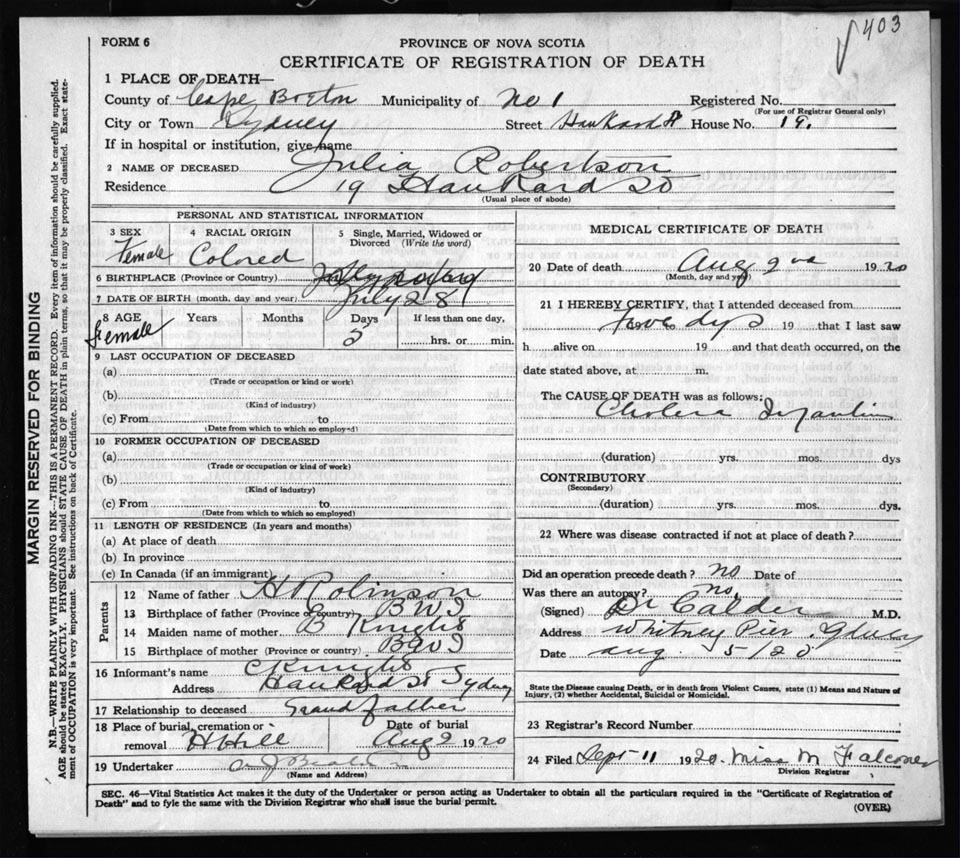 403
FORM 6
PROVINCE OF NOVA SCOTIA
CERTIFICATE OF REGISTRATION OF DEATH
1 PLACE OF DEATH—
County of Cape Breton Municipality of No 1 Registered No.
(For use of Registrar General only)
City or Town Sydney Street Hankard St House No. 19.
If in hospital or institution, give name
2 NAME OF DECEASED Julia Robertson
Residence 19 Hankard St
(Usual place of abode)
PERSONAL AND STATISTICAL INFORMATION
3 SEX 4 RACIAL ORIGIN 5 Single, Married, Widowed or Divorced (Write the word)
Female Colored
6 BIRTHPLACE (Province or Country)
7 DATE OF BIRTH (month, day and year) July 28
8 AGE Years Months Days If less than one day,
Female 5 hrs. or min.
9 LAST OCCUPATION OF DECEASED
(a)
(Trade or occupation or kind or work)
(b)
(Kind of industry)
(c) From to
(Date from which to which so employed)
10 FORMER OCCUPATION OF DECEASED
(a)
(Trade or occupation or kind of work)
(b)
(Kind of industry)
(c) From to
(Date from which to which so employed)
11 LENGTH OF RESIDENCE (In years and months)
(a) At place of death
(b) In province
(c) In Canada (if an immigrant)
Parents
12 Name of father H Robinson
13 Birthplace of father (Province or country) BWI
14 Maiden name of mother B Knights
15 Birthplace of mother (Province or country) BWI
16 Informant's name C Knights
Address Hankard St Sydney
17 Relationship to deceased Grand father
18 Place of burial, cremation or removal H Hill Date of burial Aug 2 1920
19 Undertaker
(Name and Address)
MEDICAL CERTIFICATE OF DEATH
20 Date of death Aug 2nd 1920
(Month, day and year)
21 I HEREBY CERTIFY, that I attended deceased from
dys 19 that I last saw
h alive on 19 and that death occurred, on the
date stated above, at m.
The CAUSE OF DEATH was as follows:
Cholera Infantum
(duration) yrs. mos. dys
CONTRIBUTORY
(Secondary)
(duration) yrs. mos. dys.
22 Where was disease contracted if not at place of death?
Did an operation precede death? no Date of
Was there an autopsy? no.
(Signed) Dr Calder M.D.
Address Whitney Pier
Date aug. 5/20
State the Disease causing Death, or in death from Violent Causes, state (1) Means and Nature of
Injury, (2) whether Accidental, Suicidal or Homicidal.
23 Registrar's Record Number
24 Filed Sept 11 1920. Miss M Falconer
Division Registrar
SEC. 46—Vital Statistics Act makes it the duty of the Undertaker or person acting as Undertaker to obtain all the particulars required in the "Certificate of Registration of
Death" and to fyle the same with the Division Registrar who shall issue the burial permit.
(OVER)
MARGIN RESERVED FOR BINDING
N.B.—WRITE PLAINLY WITH UNFADING INK—THIS IS A PERMANENT RECORD. Every item of information should be carefully supplied.
AGE should be stated EXACTLY. PHYSICIANS should STATE CAUSE OF DEATH in plain terms, so that it may be properly classified. Exact state-
ment of OCCUPATION is very important. See instructions on back of Certificate.